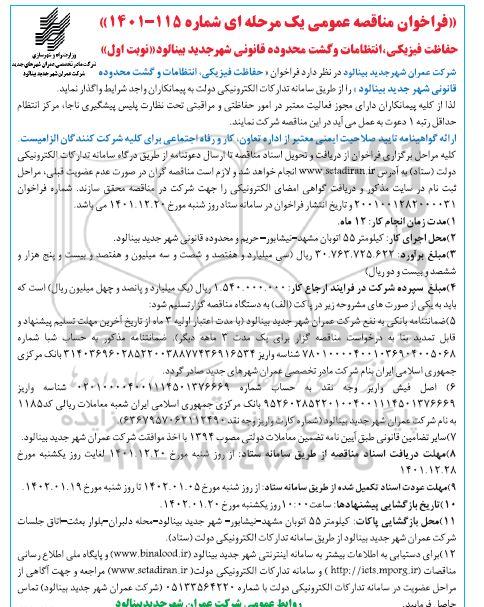 «فراخوان مناقصه عمومی یک مرحله ای شماره ۱۱۵-۱۴۰۱»
حفاظت فیزیکی،انتظامات وگشت محدوده قانونی شهرجدید بینالود«نوبت اول»
وزارت راه و شهرسازی
شرکت مادر تخصصی عمران شهرهای جدید
شرکت عمران شهر جدید بینالود
شرکت عمران شهر جدید بینالود در نظر دارد فراخوان « حفاظت فیزیکی، انتظامات و گشت محدوده
قانونی شهر جدید بینالود » را از طریق سامانه تدارکات الکترونیکی دولت به پیمانکاران واجد شرایط واگذار نماید.
لذا از کلیه پیمانکاران دارای مجوز فعالیت معتبر در امور حفاظتی و مراقبتی تحت نظارت پلیس پیشگیری ناجا، مرکز انتظام
حداقل رتبه ۱ دعوت به عمل می آید در این مناقصه شرکت نمایند.
ارائه گواهینامه تایید صلاحیت ایمنی معتبر از اداره تعاون، کار و رفاه اجتماعی برای کلیه شرکت کنندگان الزامیست.
کلیه مراحل برگزاری فراخوان از دریافت و تحویل اسناد مناقصه تا ارسال دعوتنامه از طریق درگاه سامانه تدارکات الکترونیکی
دولت (ستاد) به آدرس www.setadiran.ir انجام خواهد شد و لازم است مناقصه گران در صورت عدم عضویت قبلی، مراحل
ثبت نام در سایت مذکور و دریافت گواهی امضای الکترونیکی را جهت شرکت در مناقصه محقق سازند. شماره فراخوان
۲۰۰۱۰۰۱۲۸۲۰۰۰۰۳۱ و تاریخ انتشار فراخوان در سامانه ستاد روز شنبه مورخ ۱۴۰۱.۱۲.۲۰ می باشد.
۱)مدت زمان انجام کار: ۱۲ ماه.
۲)محل اجرای کار: کیلومتر ۵۵ اتوبان مشهد-نیشابور- حریم و محدوده قانونی شهر جدید بینالود.
۳)مبلغ برآورد: ۳۰.۷۶۳.۷۲۵.۶۲۲ ریال (سی میلیارد و هفتصد و شصت و سه میلیون و هفتصد و بیست و پنج هزار و
ششصد و بیست و دو ریال)
۴)مبلغ سپرده شرکت در فرایند ارجاع کار: ۱.۵۴۰.۰۰۰.۰۰۰ ریال (یک میلیارد و پانصد و چهل میلیون ریال) است که
باید به یکی از صورت های مشروحه زیر در پاکت (الف) به دستگاه مناقصه گزار تسلیم شود:
۵)ضمانتنامه بانکی به نفع شرکت عمران شهر جدید بینالود (با مدت اعتبار اولیه ۳ ماه از تاریخ آخرین مهلت تسلیم پیشنهاد و
قابل تمدید بنا به درخواست مناقصه گزار برای یک مدت ۳ ماهه دیگر). ضمانتنامه مذکور به حساب شبا شماره
شناسه واریز بانک مرکزی
جمهوری اسلامی ایران بنام شرکت مادر تخصصی عمران شهرهای جدید صادر گردد.
۶) اصل فیش واریز وجه نقد به حساب شماره شناسه واریز
بانک مرکزی جمهوری اسلامی ایران شعبه معاملات ریالی کد۱۱۸۵
به نام شرکت عمران شهر جدید بینالود (شماره کارت واریز وجه نقد )
۷)سایر تضامین قانونی طبق آیین نامه تضمین معاملات دولتی مصوب ۱۳۹۴ با اخذ موافقت شرکت عمران شهر جدید بینالود.
۸)مهلت دریافت اسناد مناقصه از طریق سامانه ستاد: از روز شنبه مورخ ۱۴۰۱.۱۲.۲۰ لغایت روز یکشنبه مورخ
۱۴۰۱.۱۲.۲۸
۹)مهلت عودت اسناد تکمیل شده از طریق سامانه ستاد: از شنبه مورخ ۱۴۰۲.۰۱.۰۵ تا روز شنبه مورخ ۱۴۰۲.۰۱.۱۹.
۱۰)تاریخ بازگشایی پیشنهادها: ساعت۱۰:۰۰روز یکشنبه مورخ ۱۴۰۲.۰۱.۲۰.
۱۱)محل بازگشایی پاکات: کیلومتر ۵۵ اتوبان مشهد-نیشابور- شهر جدید بینالود-محله دلبران-بلوار بعثت-اتاق جلسات
شرکت عمران شهر جدید بینالود و از طریق سامانه تدارکات الکترونیکی دولت (ستاد).
۱۲)برای دستیابی به اطلاعات بیشتر به سامانه اینترنتی شهر جدید بینالود (www.binalood.ir) و پایگاه ملی اطلاع رسانی
مناقصات (http://iets.mporg.ir) و سامانه تدارکات الکترونیکی دولت( www.setadiran.ir) مراجعه و جهت آگاهی از
مراحل عضویت در سامانه تدارکات الکترونیکی دولت با شماره ۰۵۱۳۳۵۶۴۲۲۰ (شرکت عمران شهر جدید بینالود) تماس
حاصل فرمایید.
روابط عمومی شرکت عمران شهرجدیدبینالود